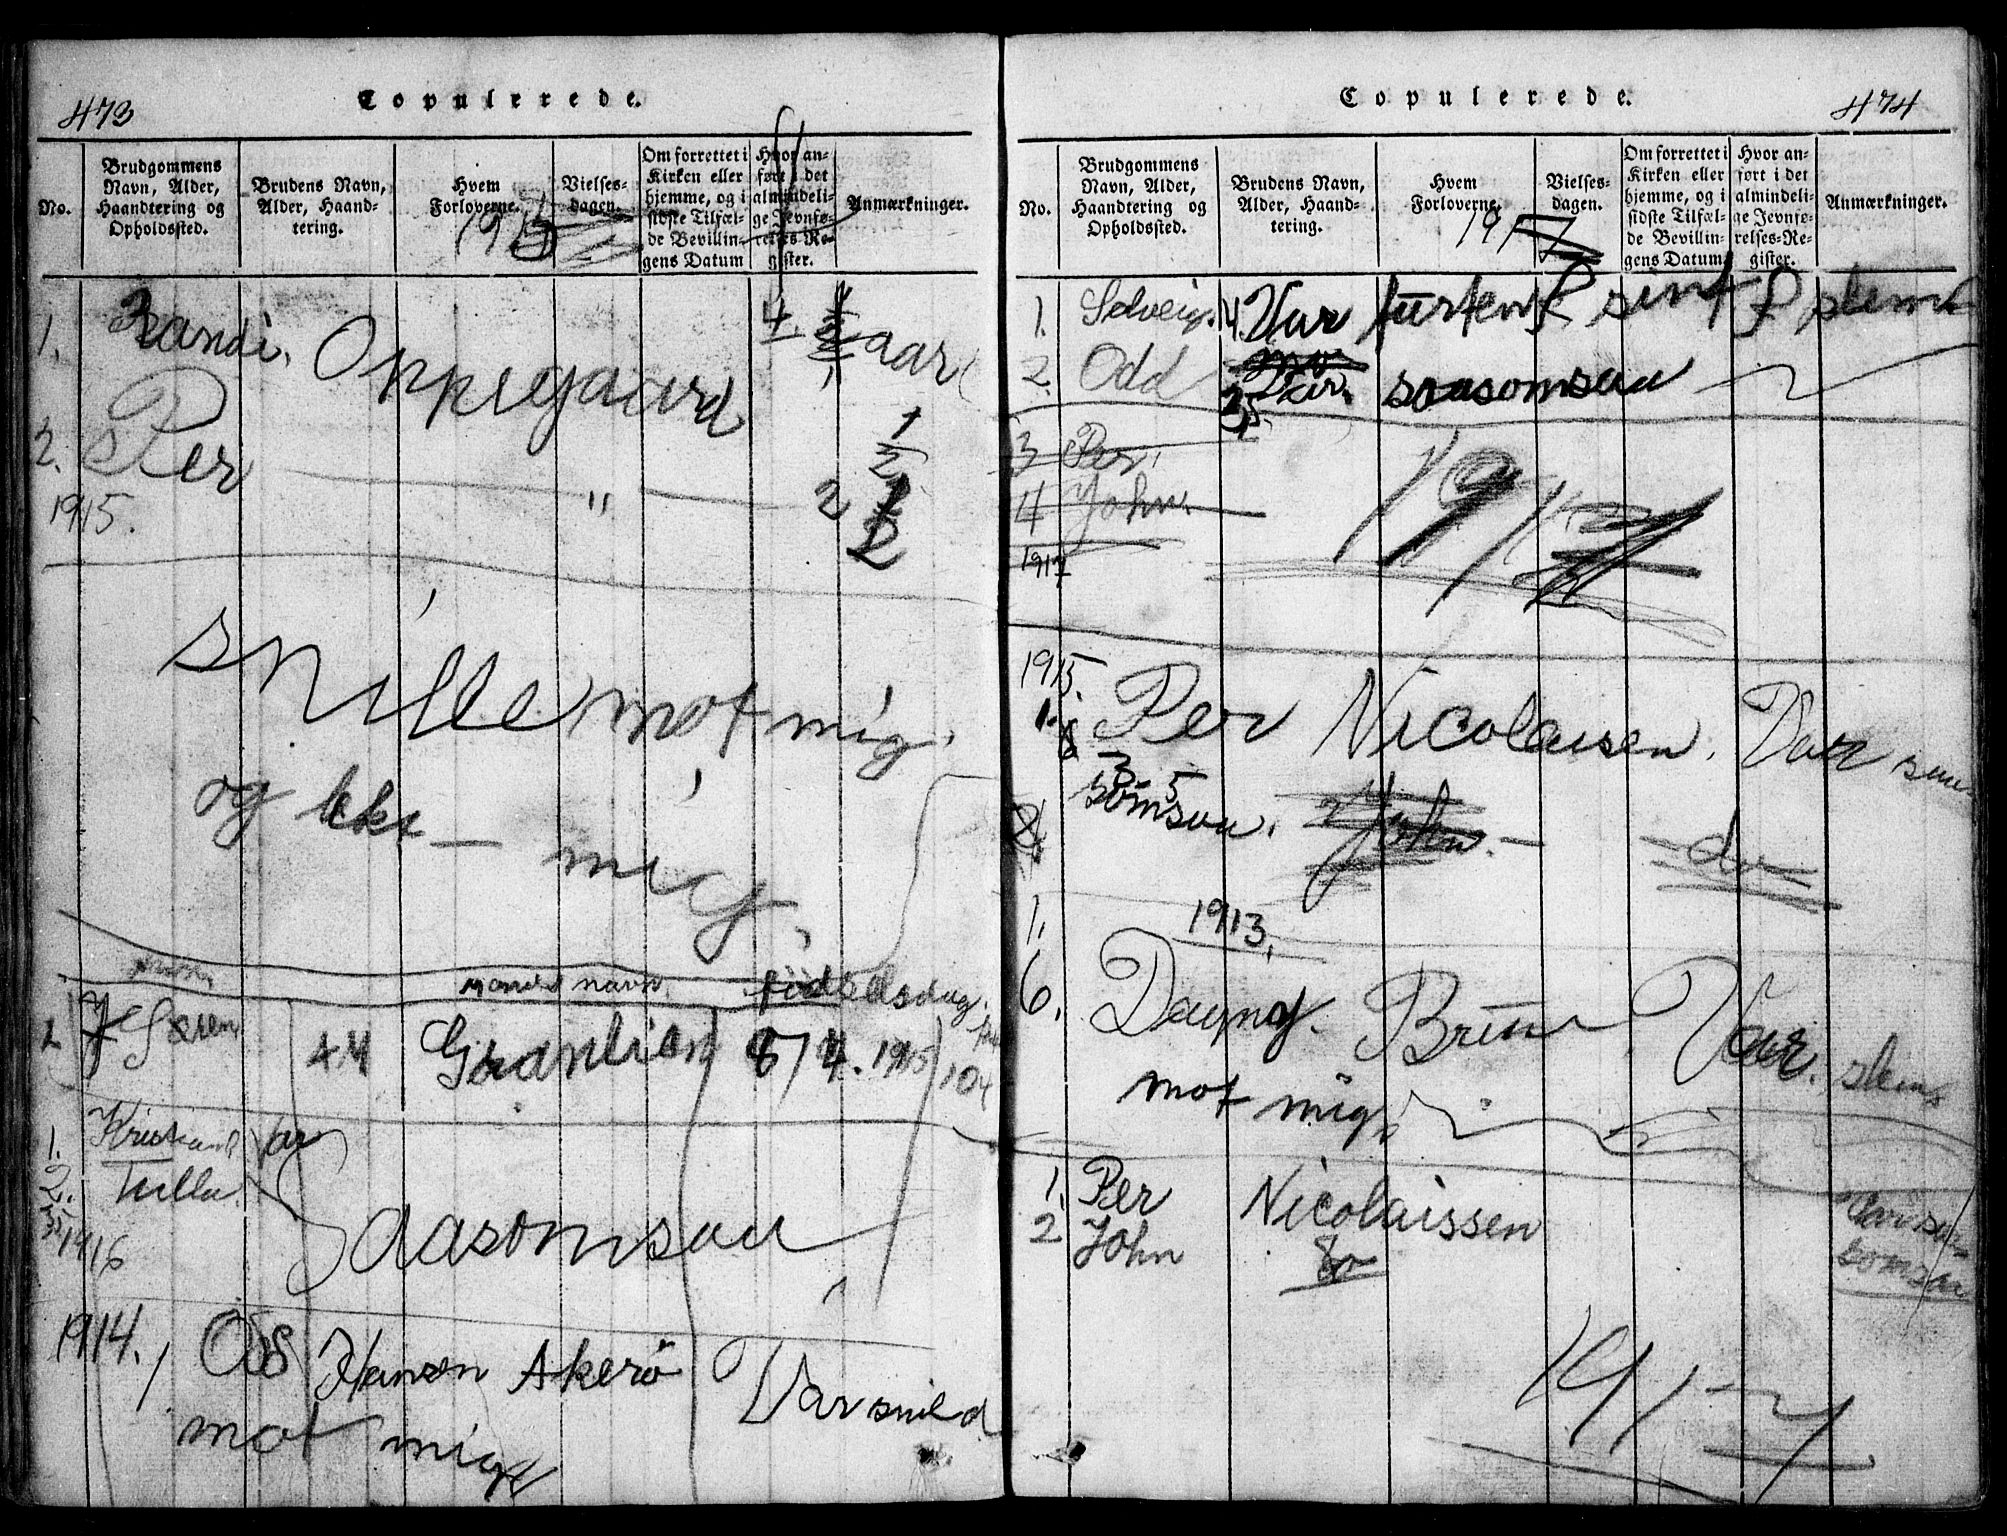 473
Copulerede.
No.
Brudgommens Navn, Alder, Haandtering og Opholdssted.
Brudens Navn, Alder, Haandtering.
Hvem Forloverne.
Vielsesdagen.
Om forrettet i Kirken eller hjemme, og i sidste Tilfælde Bevillingens Datum
Hvor anført i det almindelige Jevnførelses-Register.
Anmærkninger.
1. Randi. Oppegaard 4 1/2 aar
2. Per " 2 1/2
1915.
snille mot mig.
og
mig.
navn. fødselsdag.
Søren 44 Granlien 1915 104
1. Kristian Var
2. Tulla. saasomsaa
1916
1914. Hansen Akerö Var snild
mot mig
474
Copulerede.
No.
Brudgommens Navn, Alder, Haandtering og Opholdssted.
Brudens Navn, Alder, Haandtering.
Hvem Forloverne.
Vielsesdagen.
Om forrettet i Kirken eller hjemme, og i sidste Tilfælde Bevillingens Datum
Hvor anført i det almindelige Jevnførelses-Register.
Anmærkninger.
1917
1. Solveig. 14. Var
2. Odd saasomsaa
3 Per.
4 John.
1917
1917
1915.
1. Per Nicolaisen. Var saa
somsaa. John. do
1.
1913.
6. Dagny. Brun Var. slem
mot mig.
1. Per Nicolaissen Var saa-
2 John do somsaa
1917